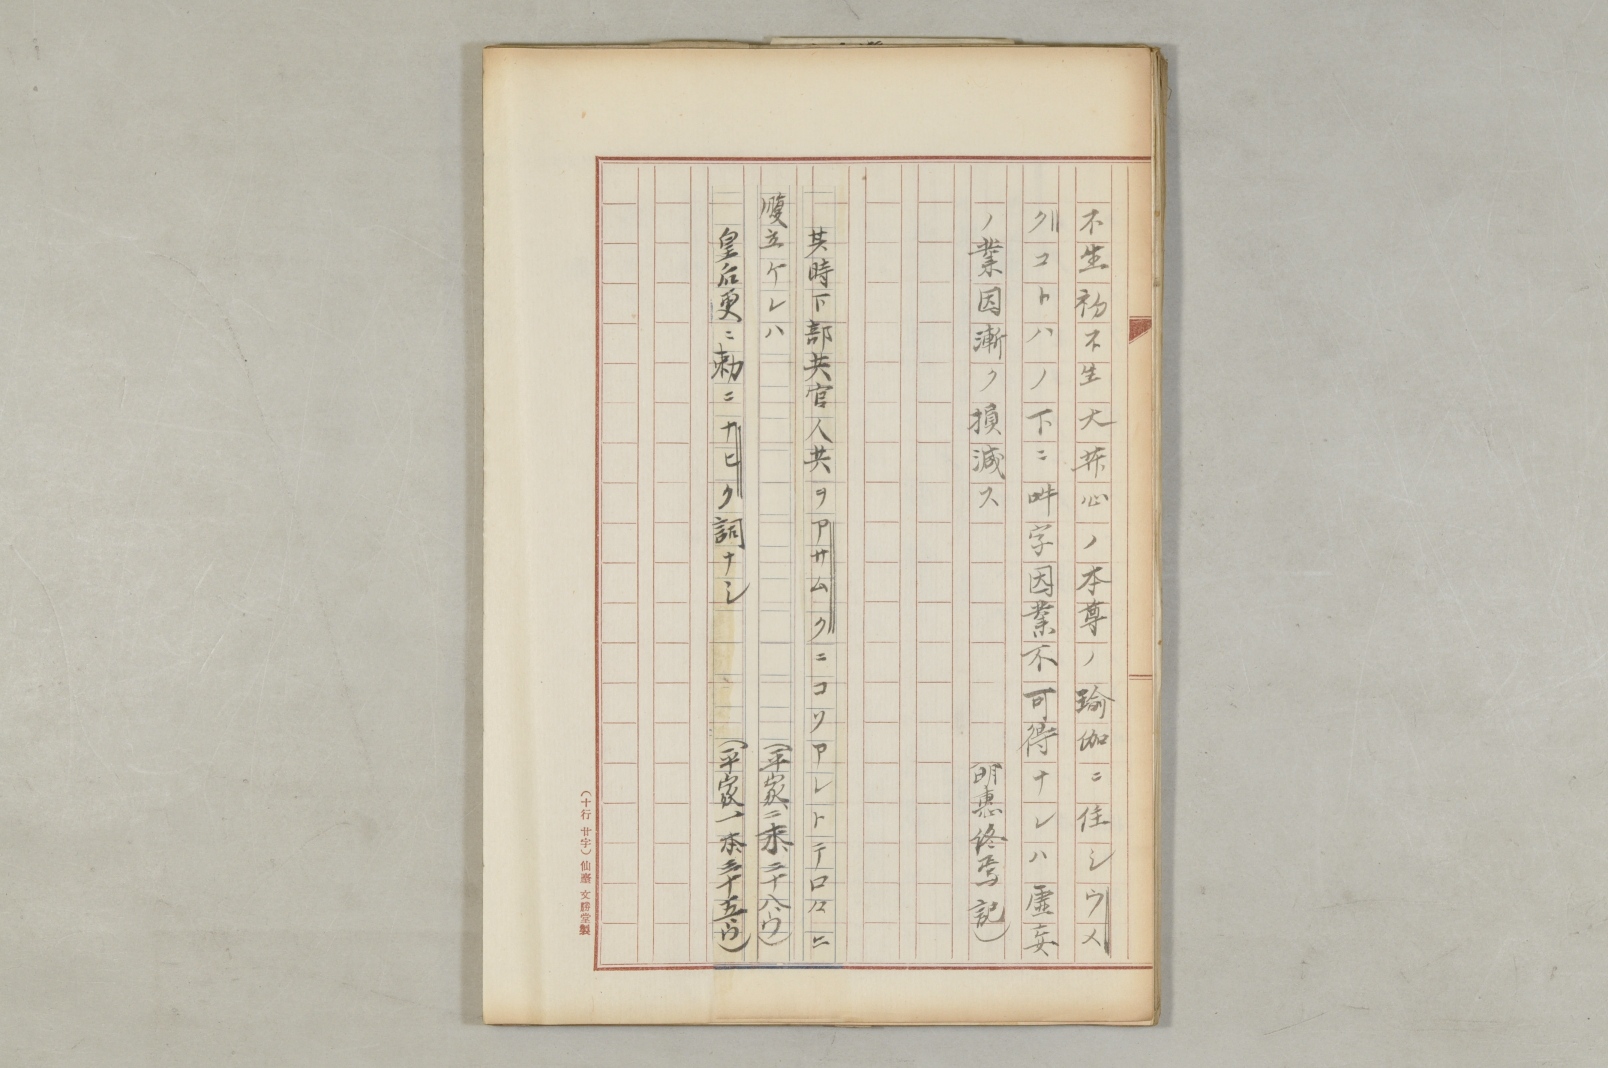 不生初不生大𦬇心ノ本尊ノ瑜伽ニ住シウメ
クルコトハノ下ニ吽字因業不可得ナレハ虚妄
ノ業因漸ク損減ス　（明恵終焉記）
其時下部共官人共ヲアサムクニコソアレトテロ々ニ
腹立ケレハ　（平家二末二十八ウ）
皇后更ニ勅ニナヒク詞ナシ　（平家一本三十五ウ）
（十行 廿字）仙臺 文勝堂製